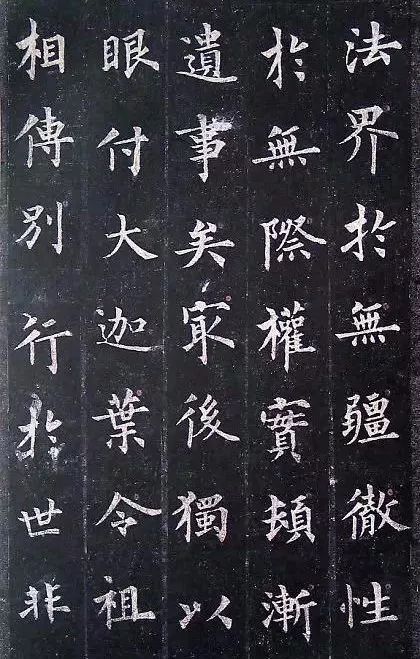 法界扵無疆徹性
扵無際權實頓漸
遺事矣㝡後獨以
眼付大迦葉令祖
相傳別行扵世非